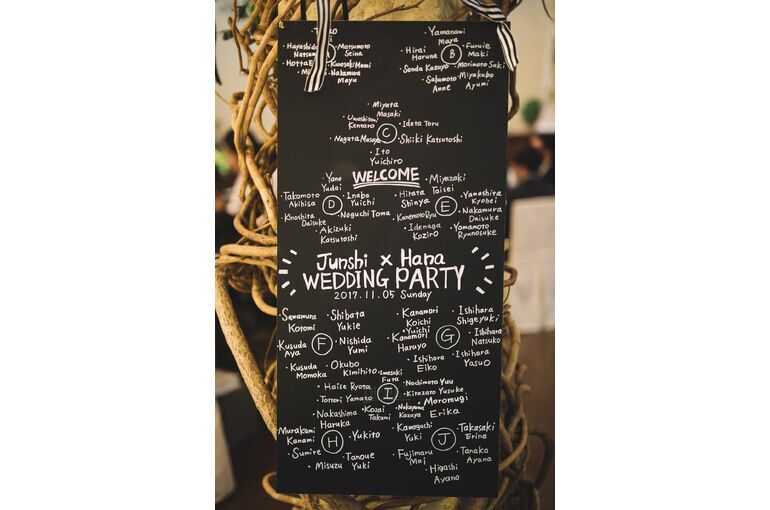 Yamanami
Maya
· Hayashida
· Matsumoto
Seina
· Hirai
Haruna
B
· Furuie
Maki
· Kurosaki Mami
· Nakamura
Mayu
· Sonda Kazuyo
· Morimoto Saki
· Sakumoto
Anne
· Miyakubo
Ayumi
· Miyata
Masaki
Kentaro
C
· Ideta Toru
· Nagata Masaya
· Shiiki Katsutoshi
· Ito
Yuichiro
WELCOME
· Yano
Yudai
· Takamoto
Akihisa
D
· Inaba
Yuichi
· Kinoshita
Daisuke
· Noguchi Toma
· Akizuki
Katsutoshi
· Miyazaki
Taisei
· Hirata
Shinya
E
· Yamashita
Kyohei
· Kanemoto Ryu
· Nakamura
Daisuke
· Idenaga
Kojiro
· Yamamoto
Ryunosuke
Junshi × Hana
WEDDING PARTY
2017.11.05 Sunday
· Sawamura
Kotomi
· Shibata
Yukie
F
· Kusuda
Aya
· Nishida
Yumi
· Kusuda
Momoka
· Okubo
Kimihito
· Kanamori
Koichi
· Yuichi
· Kanamori
Haruyo
G
· Ishihara
Shigeyuki
· Ishihara
Natsuko
· Ishihara
Eiko
· Ishihara
Yasuo
· Iwasaki
Futa
· Haise Ryota
I
· Nochimoto Yuu
· Tottori Yamato
· Kitazato Yusuke
· Kosai
Takumi
· Nakayama
Kazuya
· Moromugi
Erika
· Nakashima
Haruka
· Murakami
Kanami
H
· Yukito
· Sumire
· Tanoue
Yuki
· Misuzu
· Kamoguchi
Yuki
J
· Takasaki
Erina
· Fujimaru
Mai
· Tanaka
Ayana
· Higashi
Ayano